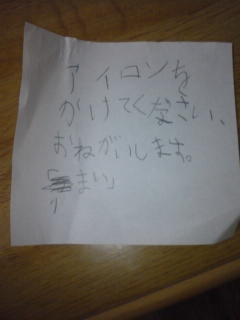 アイロンを
かけてください、
おねがいします。
「まい」